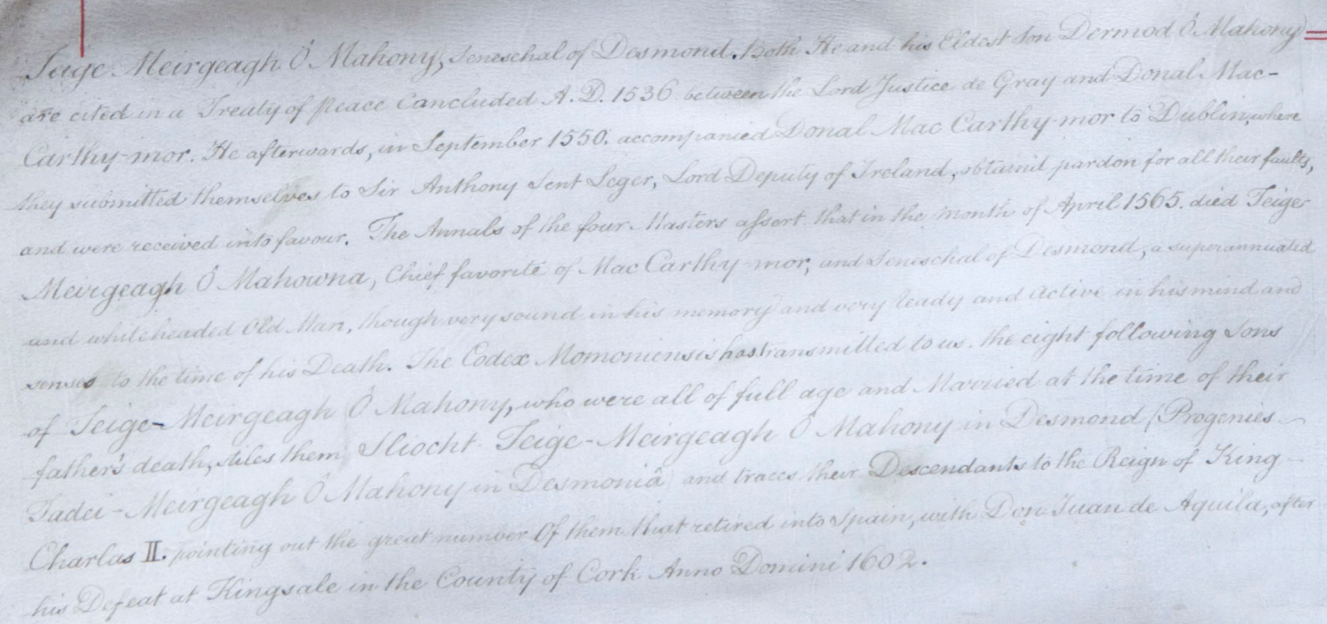 Teige-Meirgeagh Ó Mahony, Seneschal of Desmond. Both He and his Eldest Son Dermod Ó Mahony
are cited in a Treaty of Peace Concluded A. D. 1536 between the Lord Justice de Gray and Donal Mac-
Carthy-mor. He afterwards, in September 1550. accompanied Donal Mac Carthy-mor to Dublin, where
they submitted themselves to Sir Anthony Sent Leger, Lord Deputy of Ireland, obtained pardon for all their faults,
and were received into favour. The Annals of the four Masters assert that in the month of April 1565. died Teige
Meirgeagh Ó Mahowna, Chief favorite of Mac Carthy-mor, and Seneschal of Desmond, a superannuated
and whiteheaded Old Man, though very sound in his memory and very ready and Active in his mind and
senses to the time of his Death. The Codex Momoniensis has transmitted to us the eight following Sons
of Teige-Meirgeagh Ó Mahony, who were all of full age and Married at the time of their
father's death, stiles them Sliocht Teige-Meirgeagh Ó Mahony in Desmond (Progenies
Tadei-Meirgeagh Ó Mahony in Desmoniâ) and traces their Descendants to the Reign of King
Charlas II. pointing out the great number Of them that retired into Spain, with Don Juan de Aquila, after
his Defeat at Kingsale in the County of Cork Anno Domini 1602.